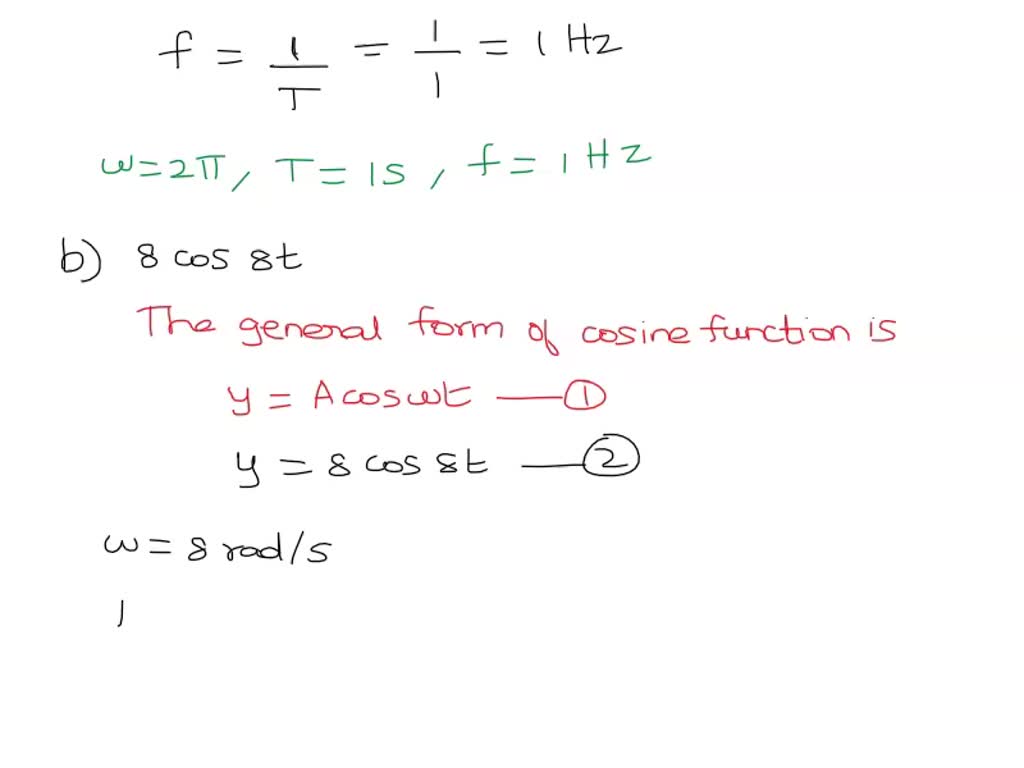 f = 1/T = 1/1 = 1 Hz
ω = 2π, T = 1s, f = 1 Hz
b) 8 cos 8t
The general form of cosine function is
y = A cos ωt —— ①
y = 8 cos 8t —— ②
ω = 8 rad/s